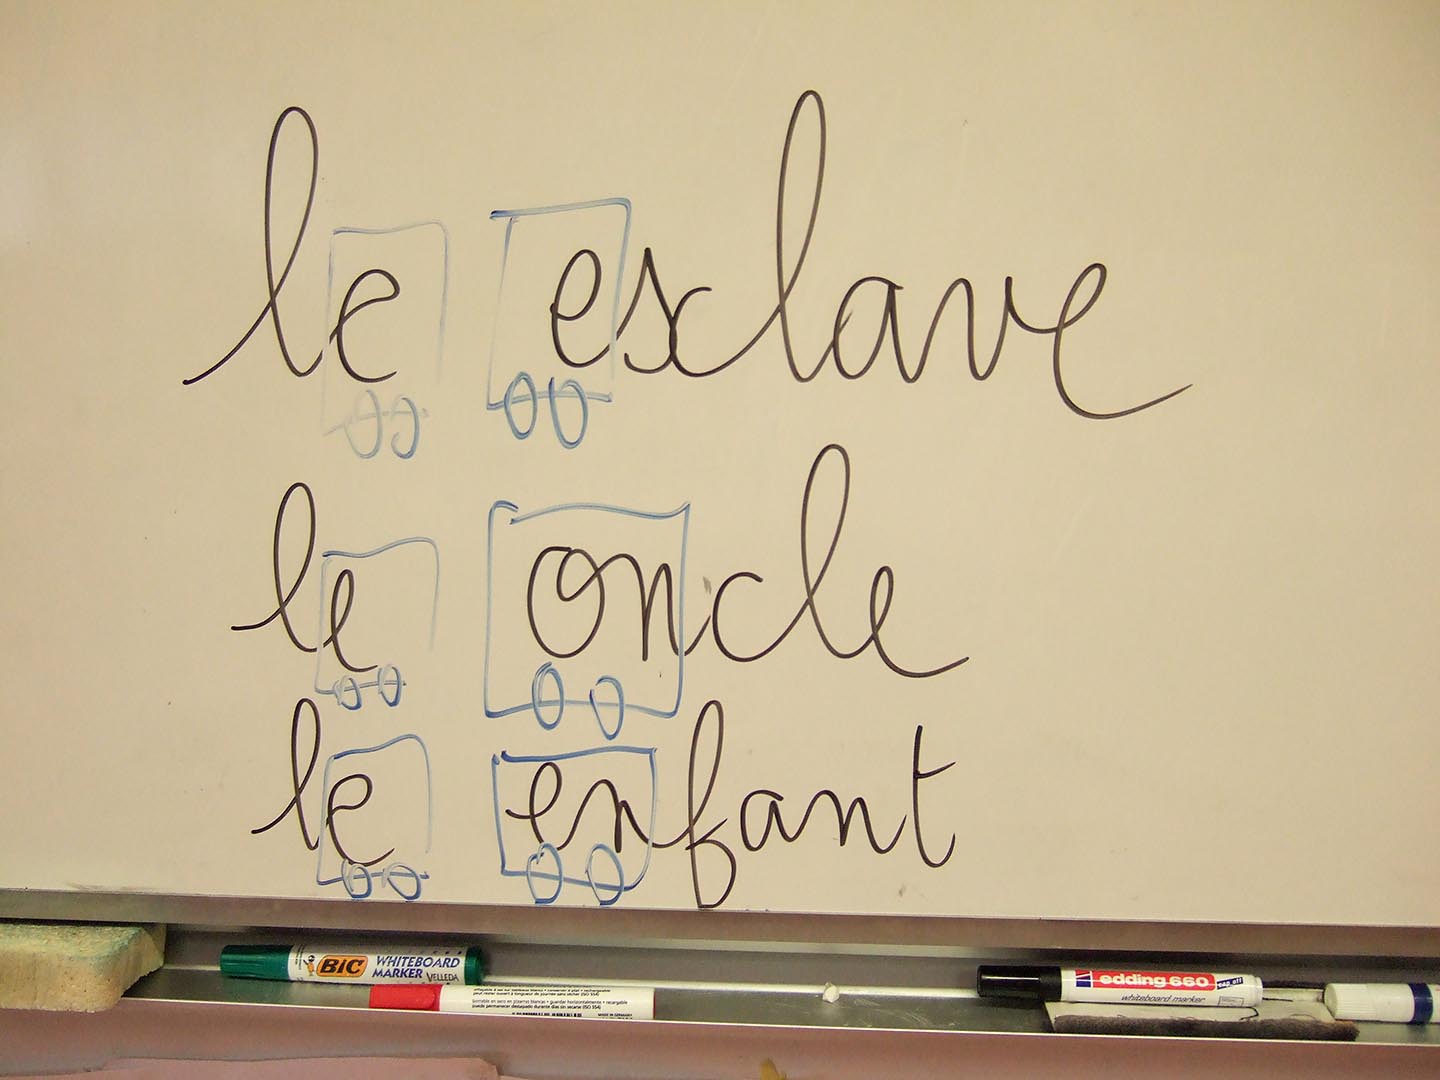 le esclave
le oncle
le enfant
BIC WHITEBOARD
MARKER VELLEDA
edding 660 cap off
whiteboard marker
MADE IN GERMANY